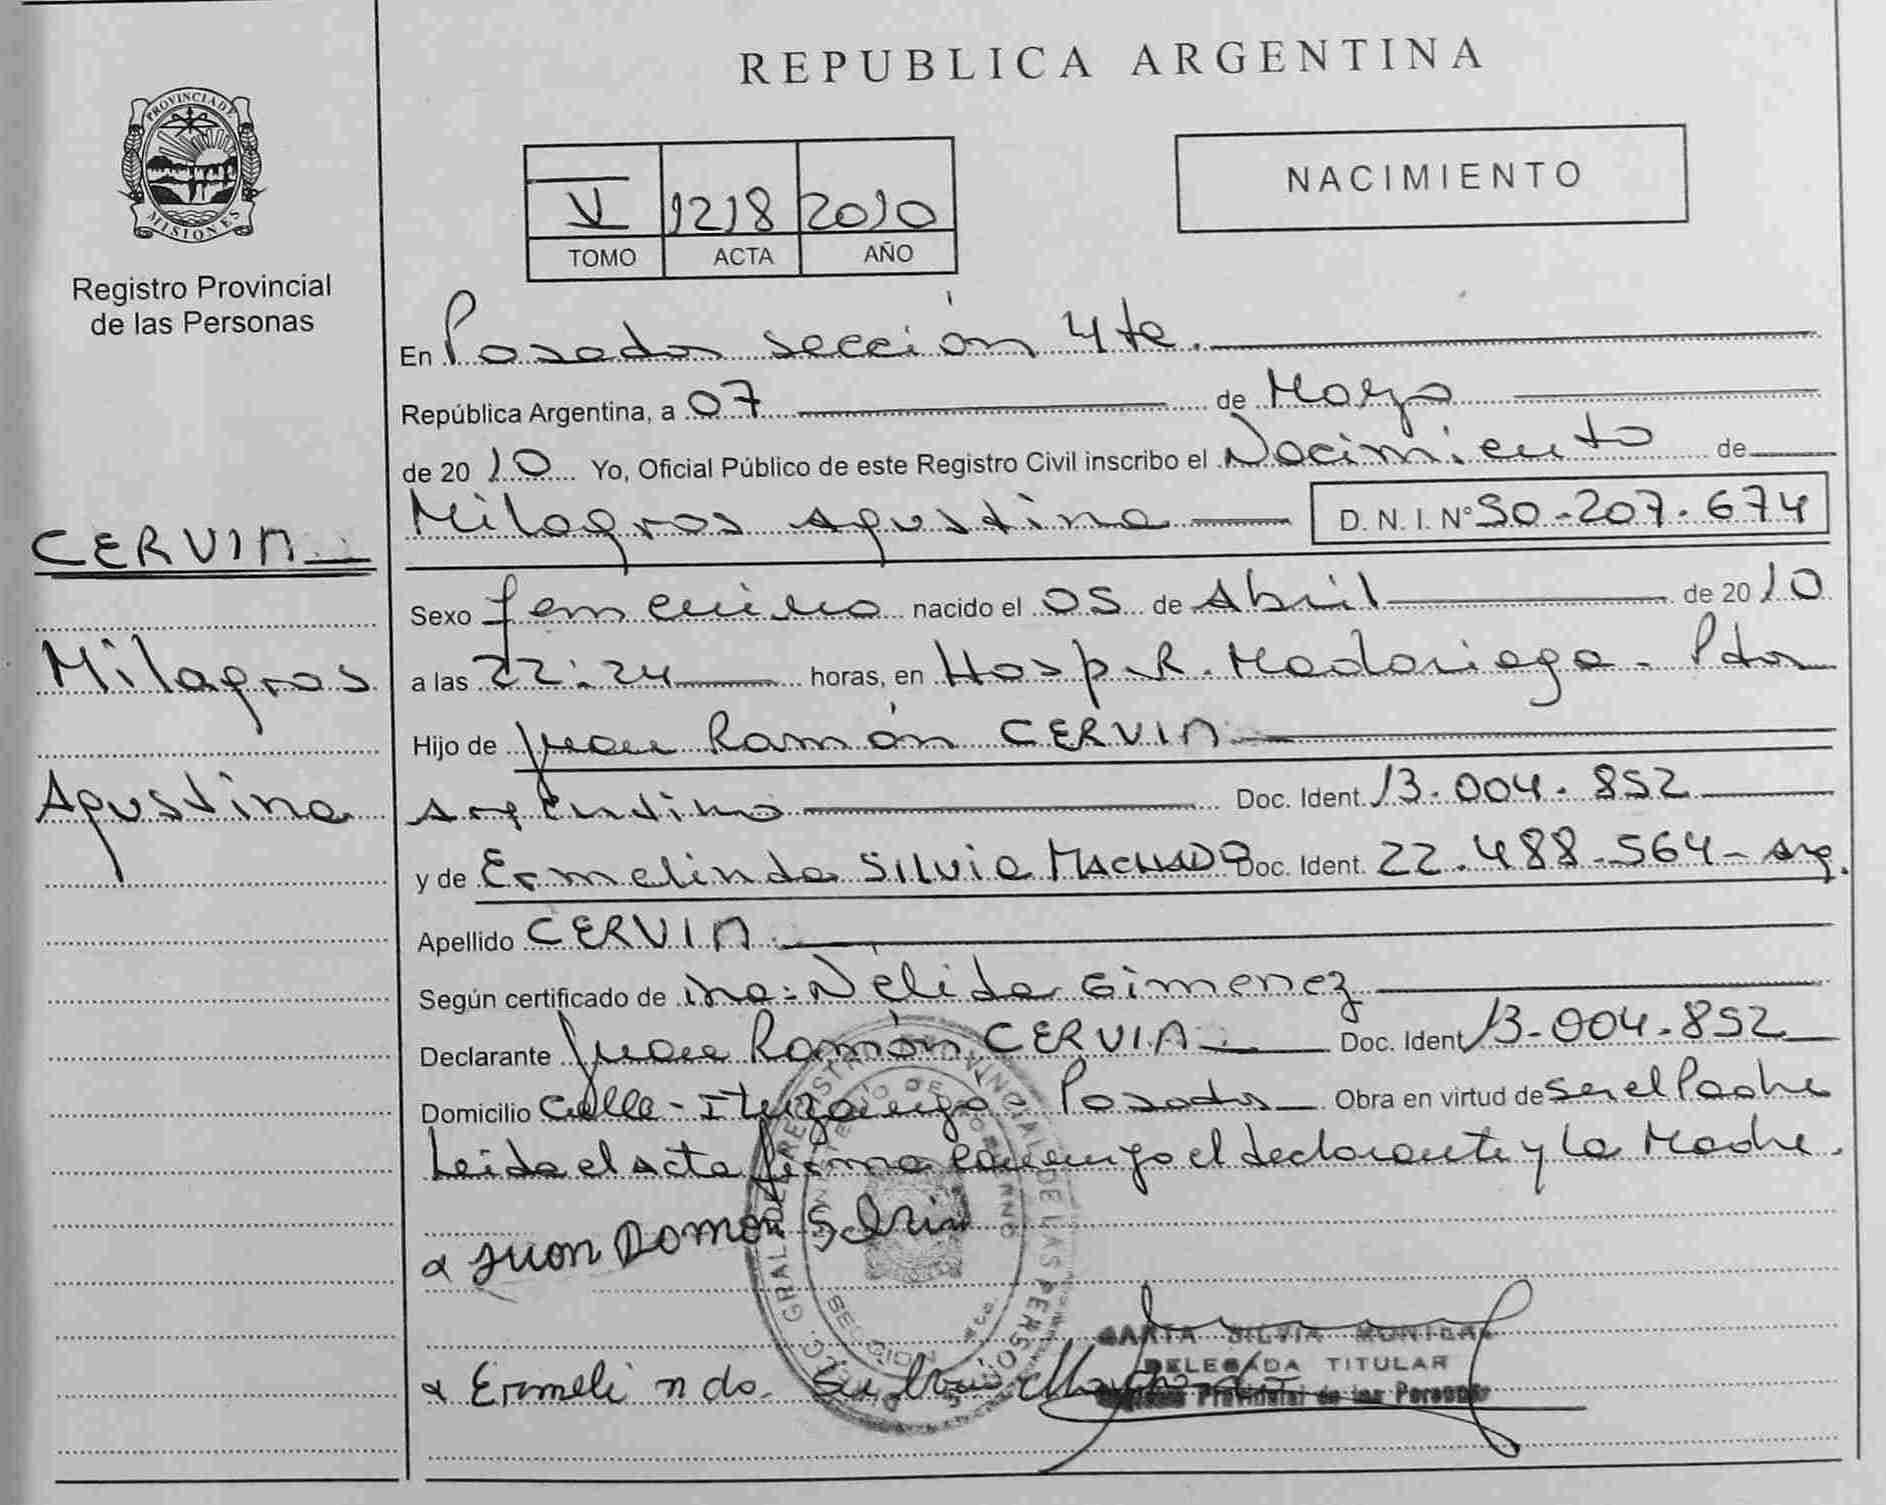 REPUBLICA ARGENTINA
PROVINCIA DE
MISIONES
Registro Provincial
de las Personas
NACIMIENTO
V 1218 2010
TOMO ACTA AÑO
En Posadas sección 4ta.
República Argentina, a 07 de Mayo
de 2010 Yo, Oficial Público de este Registro Civil inscribo el Nacimiento de
Milagros Agustina D. N. I. N° 50-207-674
CERVIN
Sexo femenino nacido el 05 de Abril de 2010
Milagros
a las 22:24 horas, en Hosp. R. Madariaga - Pdas
Hijo de Juan Ramón CERVIN
Agustina
Argentino Doc. Ident. 13.004.852
y de Ermelinda SILVIA MACHADO Doc. Ident. 22.488.564 - Arg.
Apellido CERVIN
Según certificado de Nélida Gimenez
Declarante Juan Ramón CERVIN Doc. Ident. 13.004.852
Domicilio Calle - Ituzaingó - Posadas Obra en virtud de ser el Padre
Leida el acta firma conmigo el declarante y la Madre.
Juon Romon
Ermelinda
DELEGADA TITULAR
Provincial de las Personas